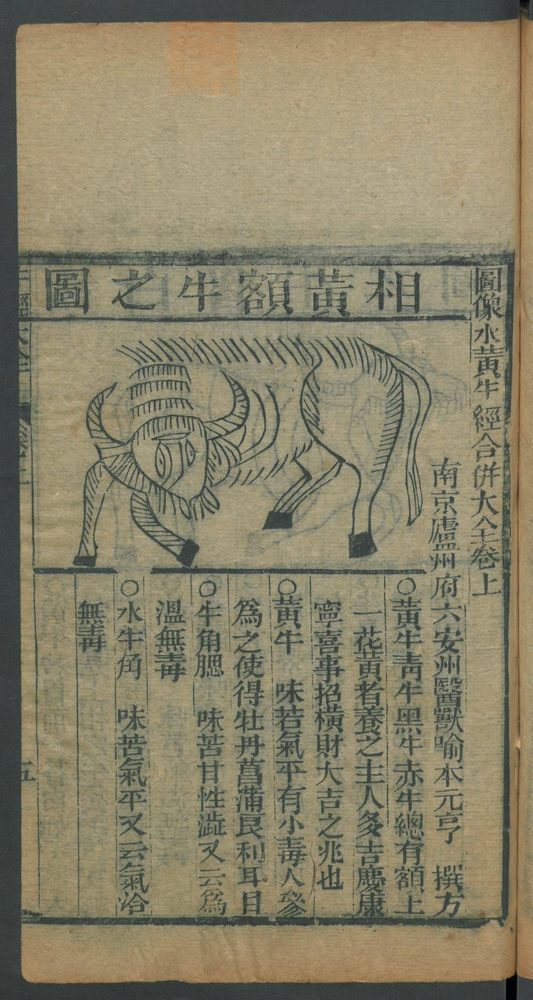 圖像水黃牛經合併大全卷上
南京廬州府六安州醫獸喻本元亨 撰方
相黃額牛之圖
○黃牛靑牛黑牛赤牛總有額上
一花黃者養之主人多吉慶康
寧喜事招橫財大吉之兆也
○黃牛 味苦氣平有小毒人參
為之使得牡丹菖蒲艮利耳目
○牛角腮 味苦甘性澁又云為
溫無毒
○水牛角 味苦氣平又云氣冷
無毒
五